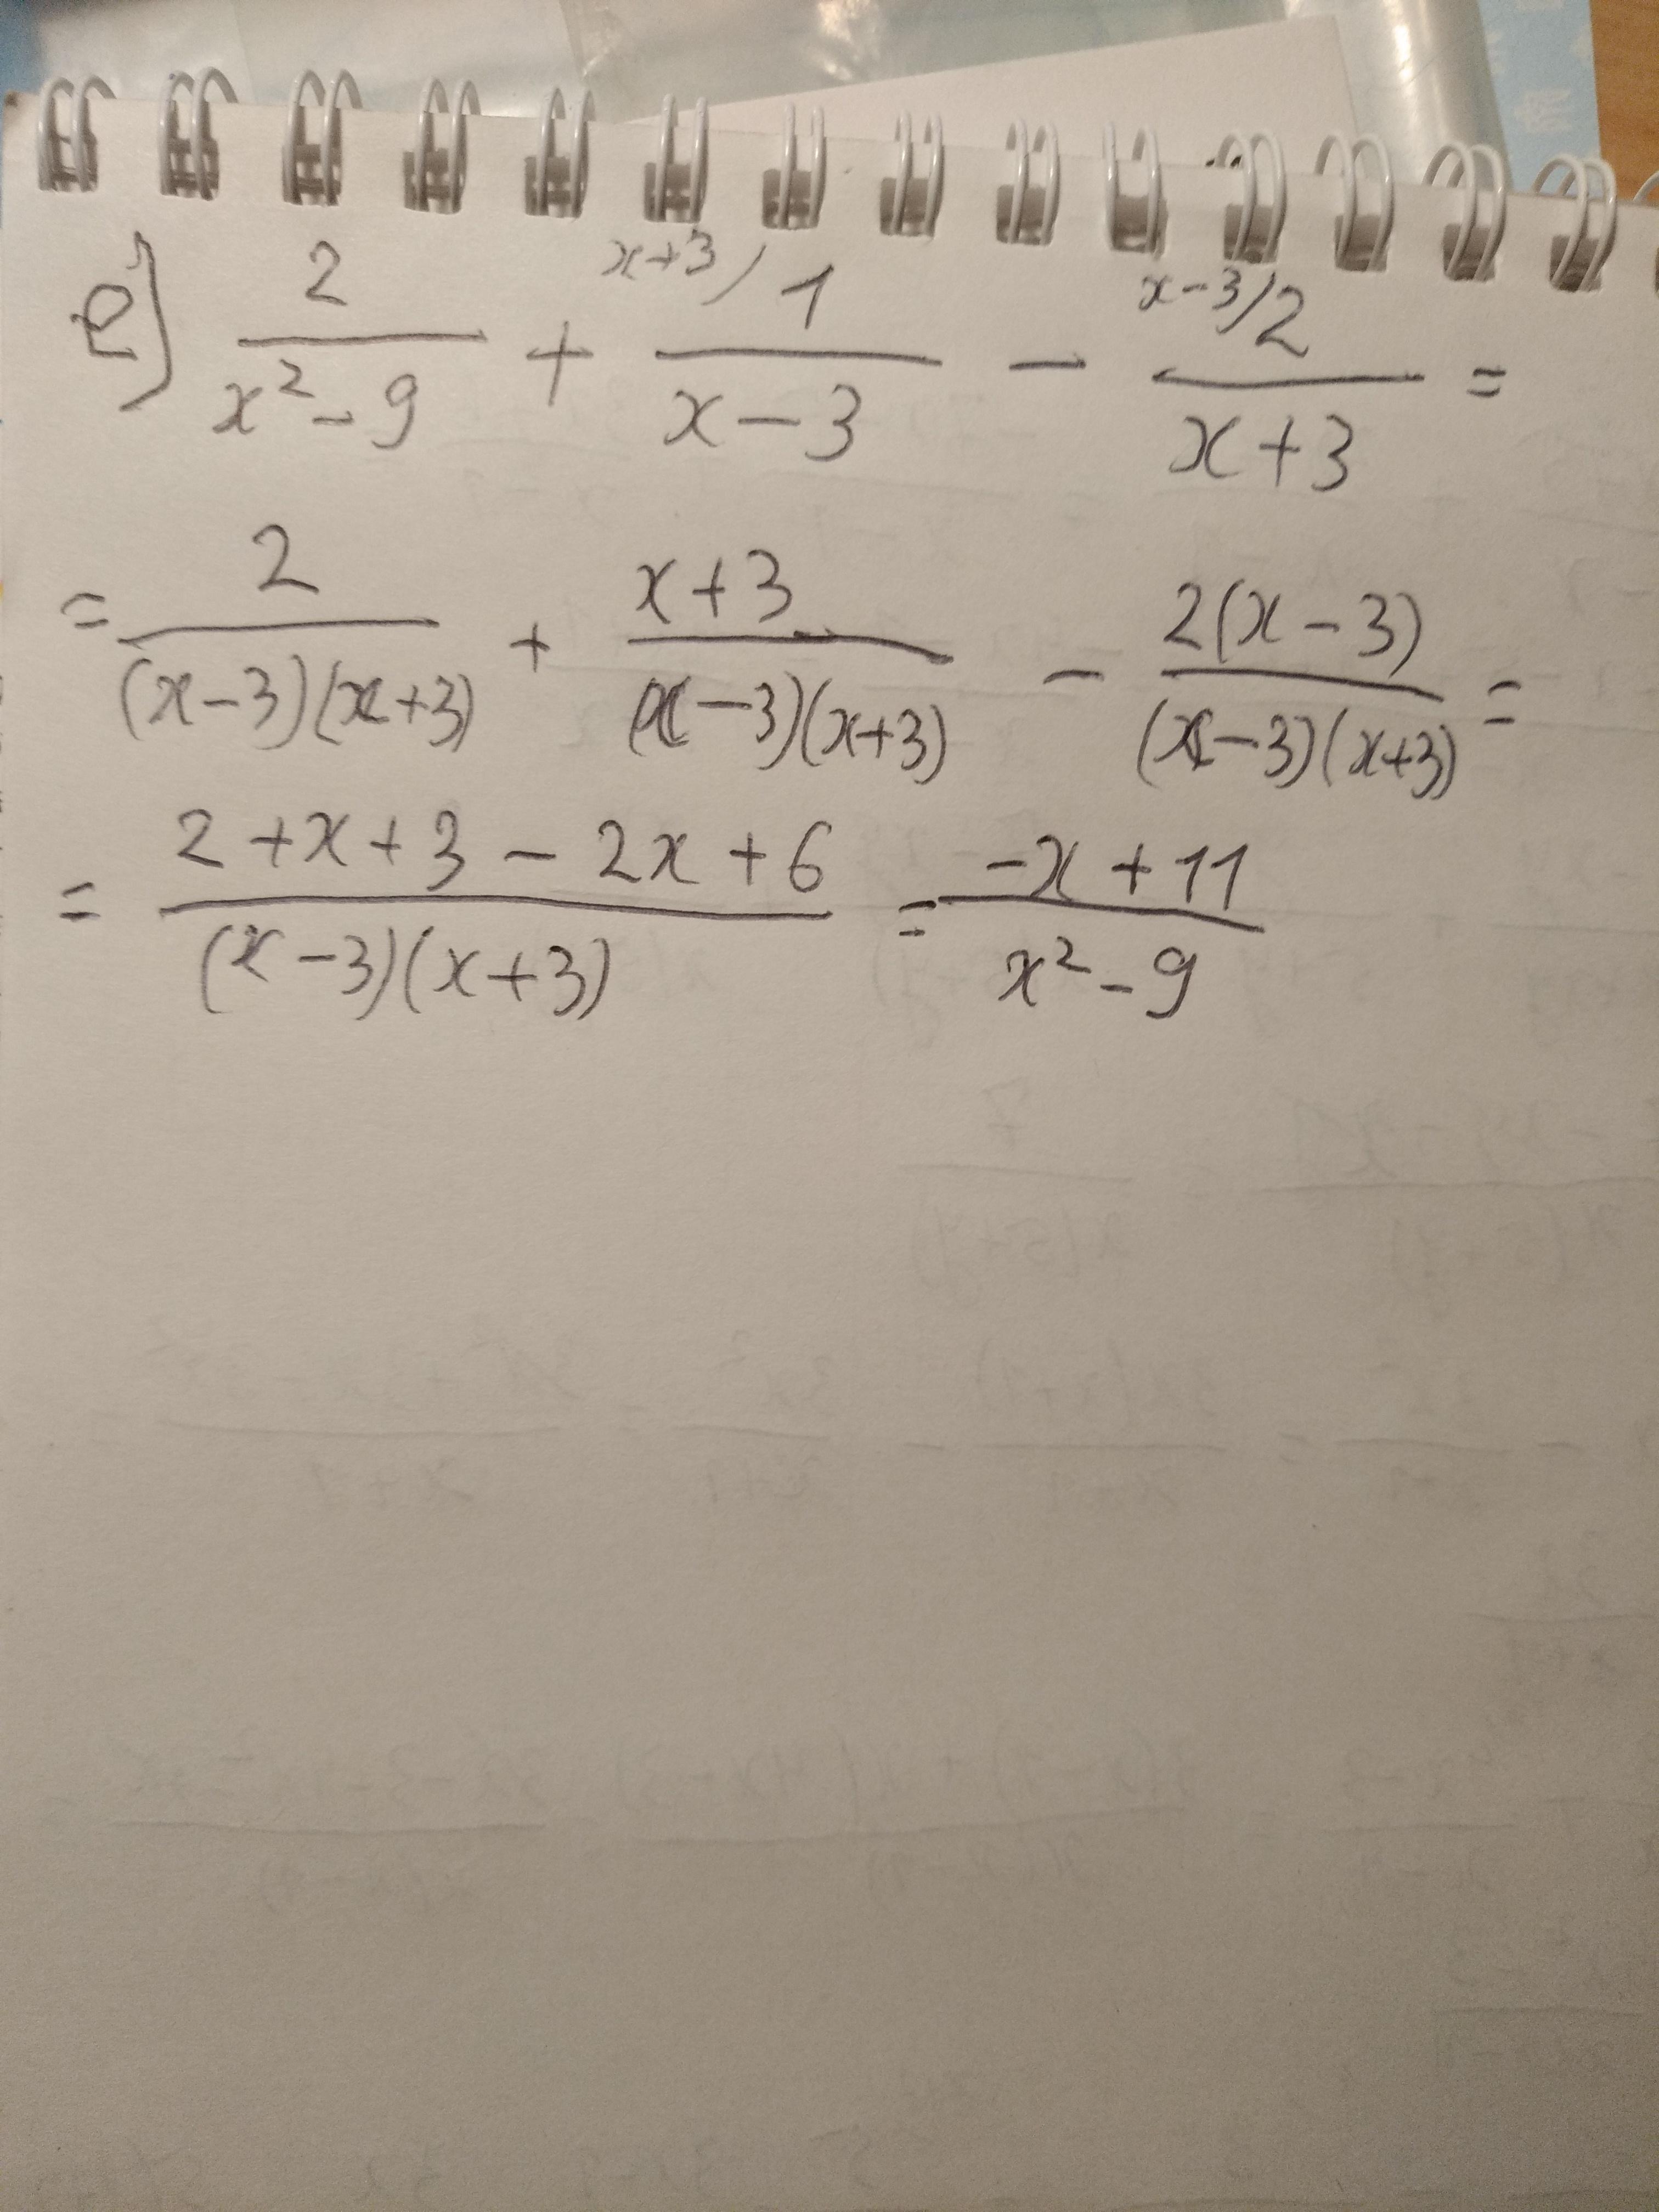 e) 2/(x² - 9) + x+3/ 1/(x - 3) - x-3/ 2/(x + 3) =
= 2/((x-3)(x+3)) + (x+3)/((x-3)(x+3)) - 2(x-3)/((x-3)(x+3)) =
= (2 + x + 3 - 2x + 6)/((x-3)(x+3)) = (-x + 11)/(x² - 9)